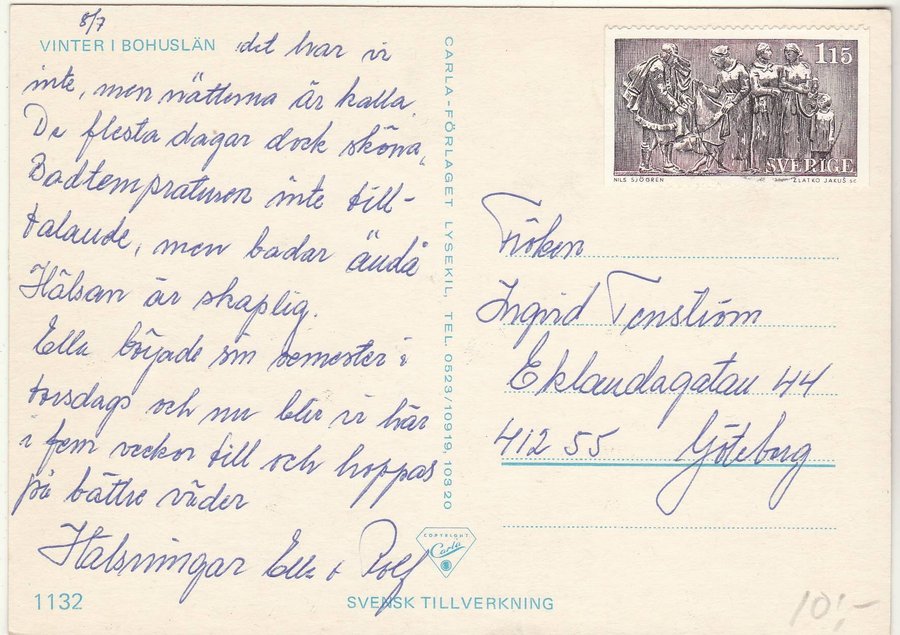 8/7
VINTER I BOHUSLÄN det har vi
inte, men nätterna är kalla.
De flesta dagar dock sköna,
Badtempraturen inte till-
talande, men badar ändå
Hälsan är skaplig.
Ella började sin semester i
torsdags och nu blir vi här
i fem veckor till och hoppas
på bättre väder
Hälsningar Ella + Rolf
1132
SVENSK TILLVERKNING
CARLA-FÖRLAGET LYSEKIL, TEL. 0523/10919, 10320
COPYRIGHT
Carla
115
SVERIGE
NILS SJÖGREN
ZLATKO JAKUŠ SC
Fröken
Ingrid Tenström
Eklandagatan 44
412 55 Göteborg
10:-